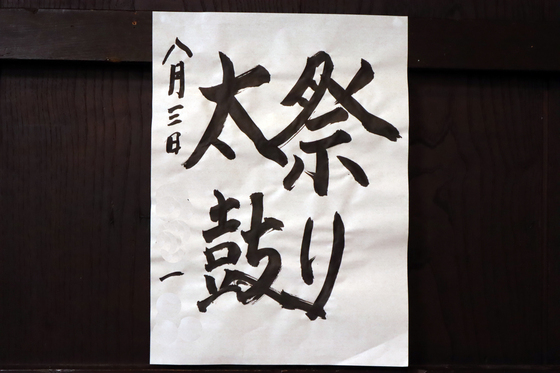 祭り
太鼓
八月三日
一